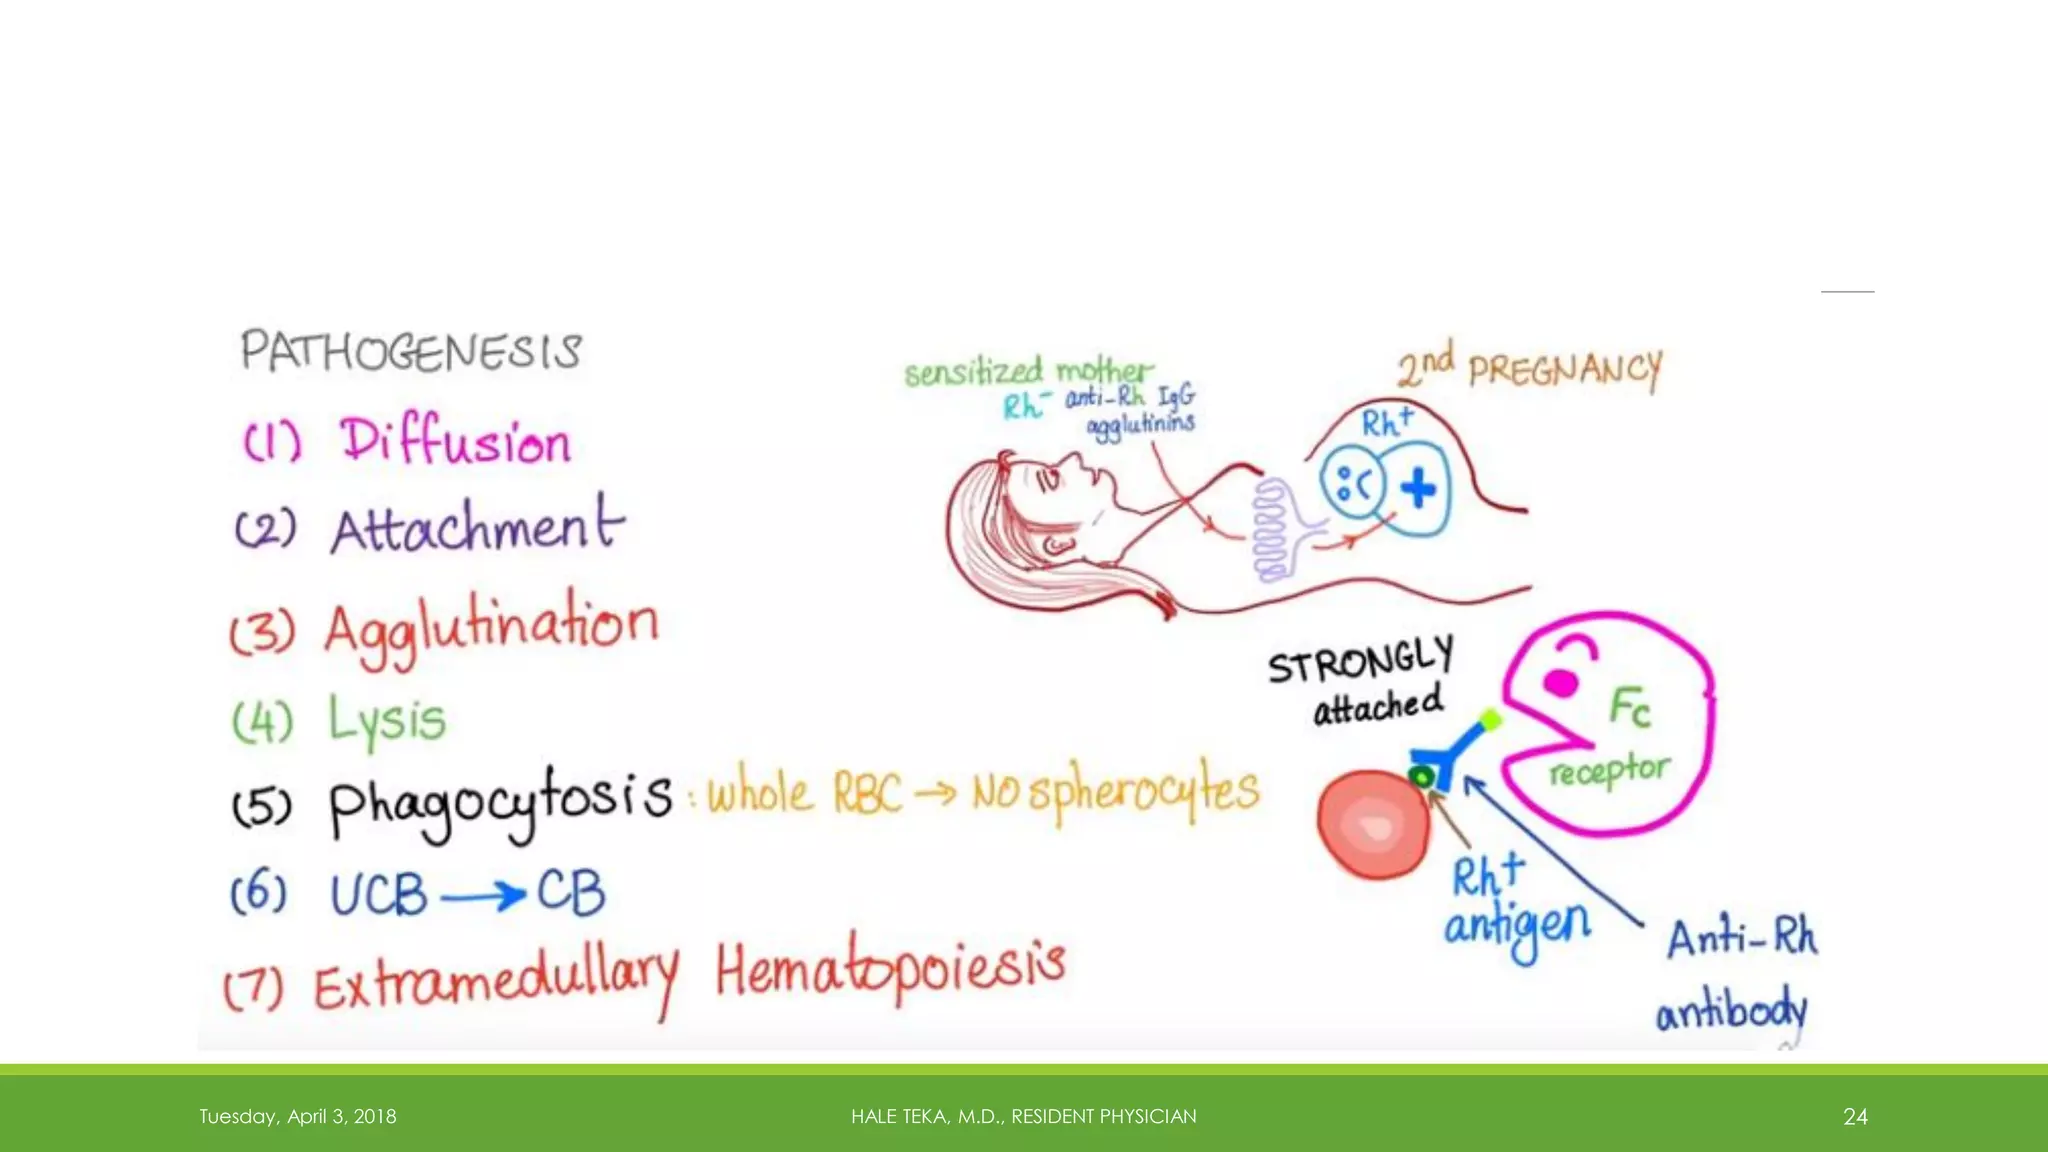 PATHOGENESIS
(1) Diffusion
(2) Attachment
(3) Agglutination
(4) Lysis
(5) Phagocytosis : whole RBC → No spherocytes
(6) UCB → CB
(7) Extramedullary Hematopoiesis
sensitized mother
Rh- anti-Rh IgG
agglutinins
2nd PREGNANCY
Rh+
+
STRONGLY
attached
Fc
receptor
Rh+
antigen
Anti-Rh
antibody
Tuesday, April 3, 2018
HALE TEKA, M.D., RESIDENT PHYSICIAN
24